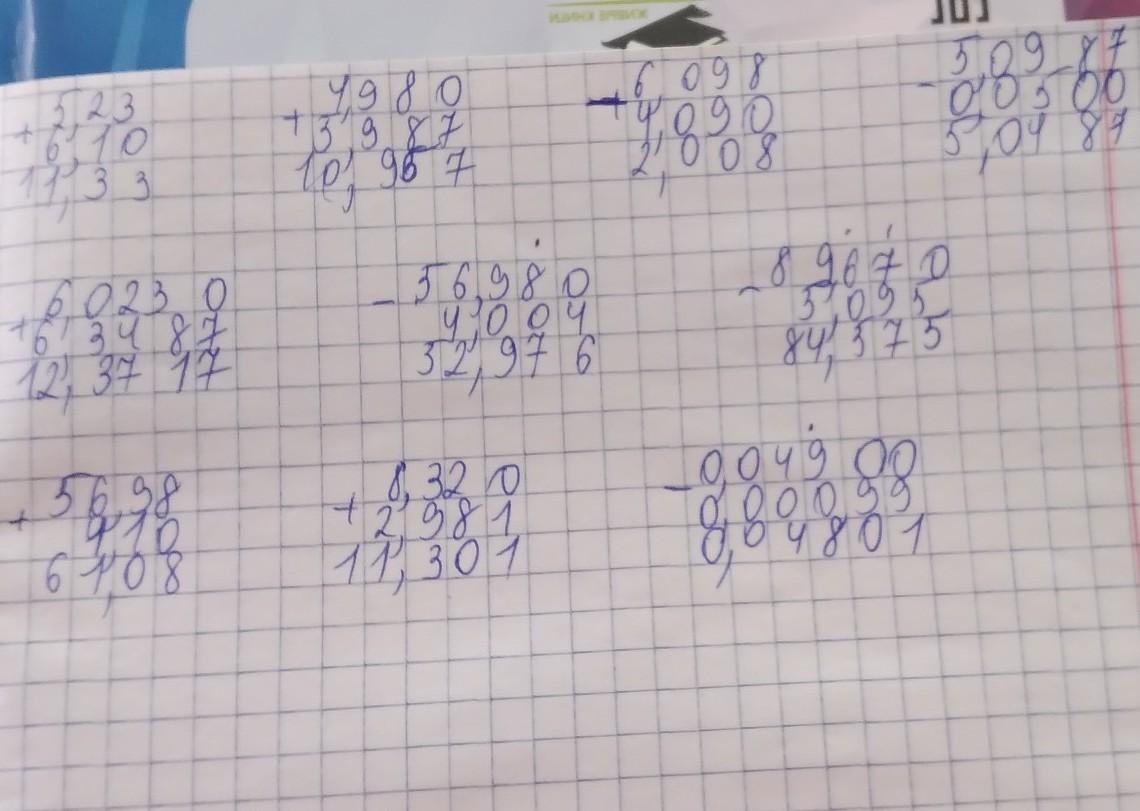 + 5,23
6,10
11,33
+ 7,980
3,987
10,967
- 6,098
4,090
2,008
- 5,0987
0,0500
5,0487
+ 6,0230
6,3487
12,3717
- 56,980
4,004
52,976
- 89,670
5,095
84,575
+ 56,98
4,10
61,08
+ 8,320
2,981
11,301
- 0,04900
0,00099
0,04801